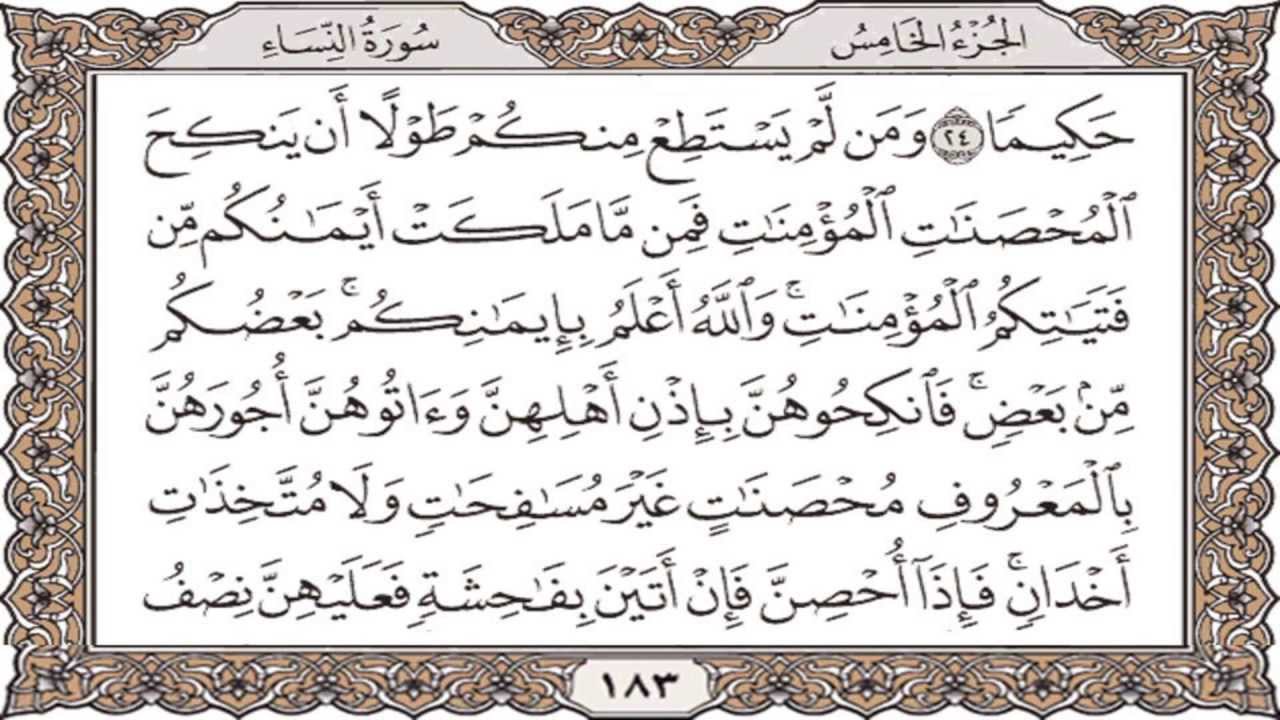 الجُزْءُ الخَامِسُ
سُورَةُ النِّسَاءِ
حَكِيمًا ٢٤ وَمَن لَّمْ يَسْتَطِعْ مِنكُمْ طَوْلًا أَن يَنكِحَ
ٱلْمُحْصَنَـٰتِ ٱلْمُؤْمِنَـٰتِ فَمِن مَّا مَلَكَتْ أَيْمَـٰنُكُم مِّن
فَتَيَـٰتِكُمُ ٱلْمُؤْمِنَـٰتِ ۚ وَٱللَّهُ أَعْلَمُ بِإِيمَـٰنِكُم ۚ بَعْضُكُم
مِّنۢ بَعْضٍ ۚ فَٱنكِحُوهُنَّ بِإِذْنِ أَهْلِهِنَّ وَءَاتُوهُنَّ أُجُورَهُنَّ
بِٱلْمَعْرُوفِ مُحْصَنَـٰتٍ غَيْرَ مُسَـٰفِحَـٰتٍ وَلَا مُتَّخِذَٰتِ
أَخْدَانٍ ۚ فَإِذَآ أُحْصِنَّ فَإِنْ أَتَيْنَ بِفَـٰحِشَةٍ فَعَلَيْهِنَّ نِصْفُ
١٨٣